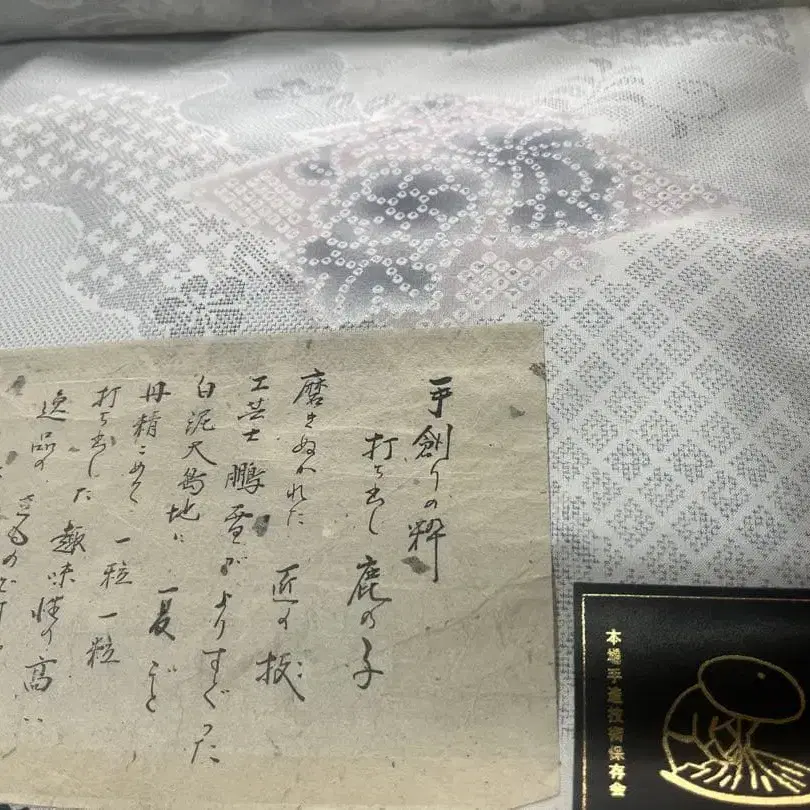 手創りの粋
打ち出し鹿の子
磨きぬかれた 匠の技
工芸士 鵬雲がよりすぐった
白泥大島地に 一反ごと
丹精こめて
打ち出した 一粒一粒
逸品の 趣味性の高い
きもので
本場手造技術保存会